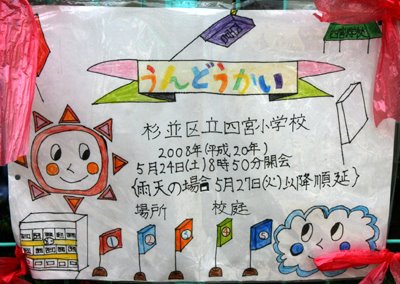 うんどうかい
杉並区立四宮小学校
2008年(平成20年)
5月24日(土)8時50分開会
{雨天の場合 5月27日(火)以降順延}
場所 校庭